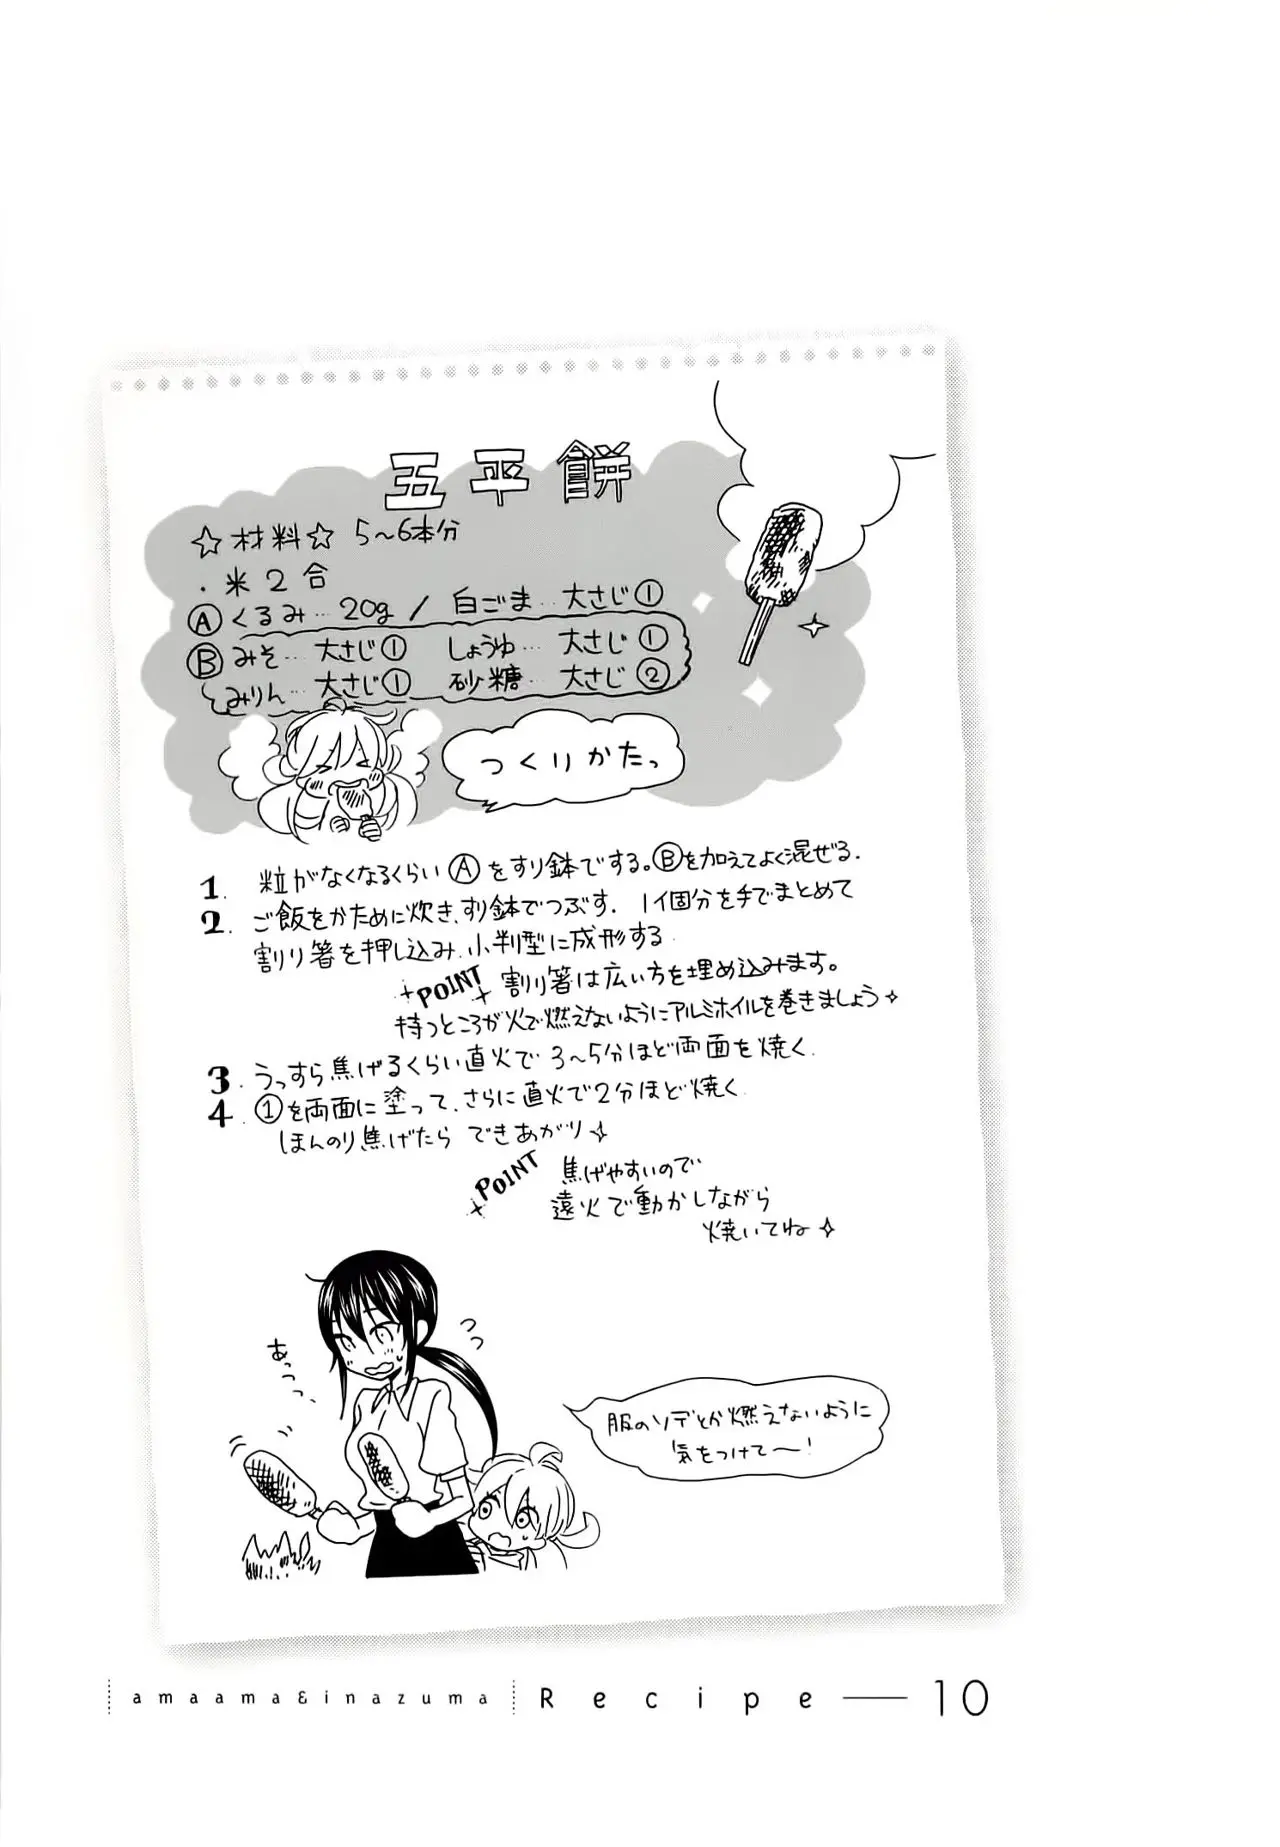 五平餅
☆材料☆ 5～6本分
・米2合
Ⓐくるみ…20g / 白ごま…大さじ①
Ⓑみそ…大さじ① しょうゆ…大さじ①
みりん…大さじ① 砂糖…大さじ②
つくりかたっ
1. 粒がなくなるくらいⒶをすり鉢でする。Ⓑを加えてよく混ぜる.
2. ご飯をかために炊き、すり鉢でつぶす. 1個分を手でまとめて
割り箸を押し込み、小判型に成形する.
POINT 割り箸は広い方を埋め込みます。
持つところが火で燃えないようにアルミホイルを巻きましょう
3. うっすら焦げるくらい直火で3～5分ほど両面を焼く.
4. ①を両面に塗って、さらに直火で2分ほど焼く.
ほんのり焦げたら できあがり
POINT 焦げやすいので
遠火で動かしながら
焼いてね
あっっ…
っっ
服のソデとか燃えないように
気をつけて〜!
amaama&inazuma Recipe — 10